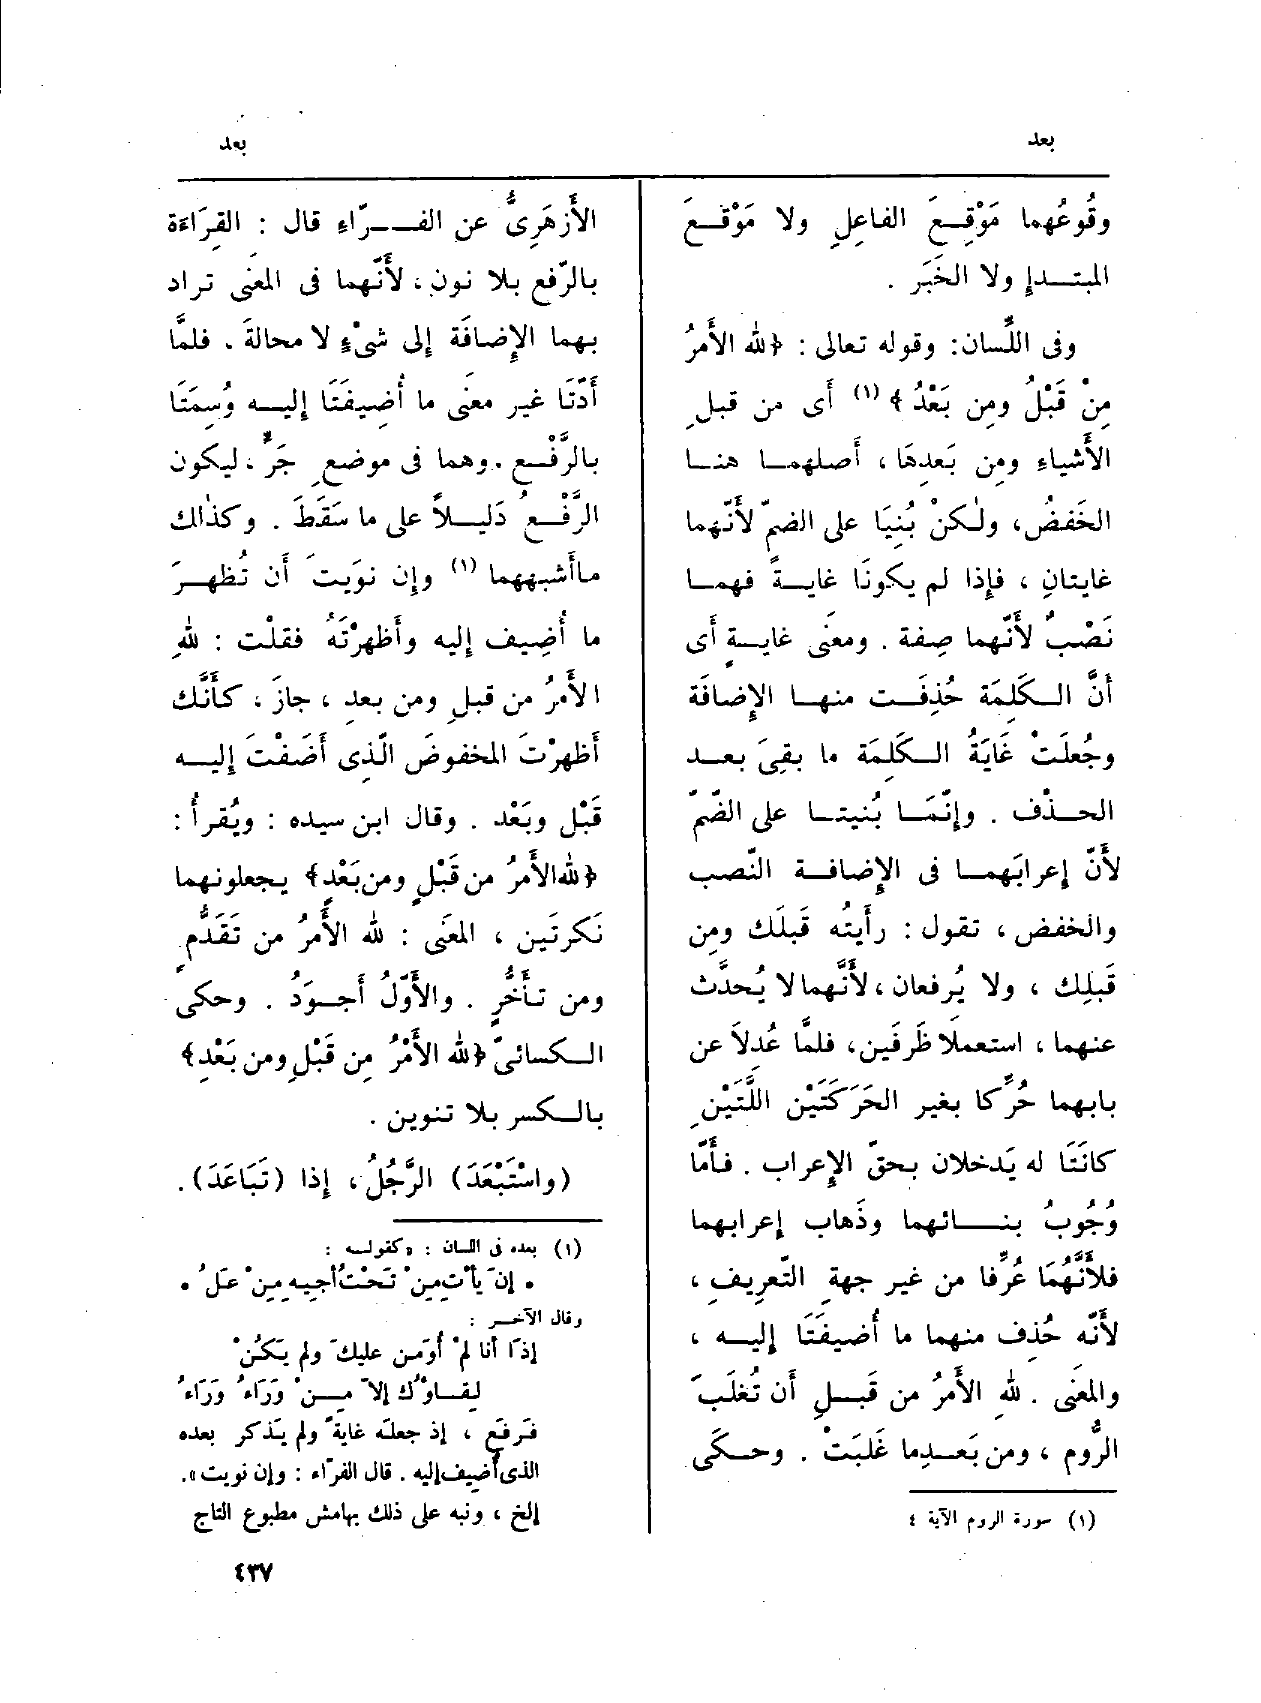 بعد
وقُوعُهما مَوْقِعَ الفاعلِ ولا مَوْقعَ
المبتدإِ ولا الخَبَر .
وفى اللِّسان: وقوله تعالى : ﴿لله الأَمرُ
مِنْ قَبْلُ ومن بَعْدُ﴾ (١) أَى من قبلِ
الأَشياءِ ومن بَعدِهَا ، أَصلهما هنا
الخَفضُ، ولكنْ بُنِيَا على الضمّ لأَنّهما
غايتانِ ، فإِذا لم يكونَا غايةً فهما
نَصْبٌ لأَنّهما صِفة . ومعنَى غايةٍ أَى
أَنَّ الكلِمَة حُذِفت منها الإِضافَة
وجُعلَتْ غَايَةُ الكلِمَة ما بقِىَ بعد
الحذْف . وإِنّمَا بُنيتا على الضّمّ
لأَنّ إِعرابَهما فى الإِضافة النّصب
والخفض ، تقول : رأَيتُه قَبلَك ومِن
قَبلِك ، ولا يُرفعان ، لأَنَّهما لا يُحدَّث
عنهما ، استعملا ظَرفَين، فلمَّا عُدلاَ عن
بابهما حُرِّكا بغير الحَرَكَتَيْن اللَّتَيْنِ
كانَتَا له يَدخلان بحقّ الإِعراب . فأَمّا
وُجُوبُ بنائهما وذَهاب إِعرابهما
فلأَنَّهُمَا عُرِّفا من غير جهةِ التّعرِيفِ ،
لأَنّه حُذِف منهما ما أُضيفَتَا إِليه ،
والمعنَى . للهِ الأَمرُ من قَبلِ أَن تُغلَبَ
الرُّوم ، ومن بَعدِما غَلَبَتْ . وحكَى
(١) سورة الروم الآية ٤
بعد
الأَزهَرِىُّ عن الفرّاءِ قال : القِرَاءَة
بالرّفع بلا نون ، لأَنّهما فى المعنَى تراد
بهما الإِضافَة إِلى شىْءٍ لا محالةَ . فلمَّا
أَدّتَا غير معنَى ما أُضِيفَتَا إِليه وُسِمَتَا
بالرَّفْع . وهما فى موضعِ جَرٍّ ، ليكون
الرَّفْعُ دَليلاً على ما سَقَطَ . وكذلك
ماأشبههما (١) وإِن نوَيتَ أَن تُظهِرَ
ما أُضِيف إِليه وأَظهرْتَهُ فقلْت : للهِ
الأَمرُ من قبلِ ومن بعدِ ، جازَ ، كأَنَّك
أَظهرْتَ المخفوضَ الّذى أَضَفْتَ إِليه
قَبْل وبَعْد . وقال ابن سيده : ويُقرأُ :
﴿لله الأَمرُ من قَبْلٍ ومن بَعْدٍ﴾ يجعلونهما
نَكرتَين ، المعنَى : لله الأَمرُ من تَقَدُّمٍ
ومن تأَخُّرٍ . والأَوّلُ أَجودُ . وحكى
الكسائىّ ﴿لله الأَمْرُ مِن قَبْلِ ومن بَعْدِ﴾
بالكسر بلا تنوين .
(واسْتَبْعَدَ) الرَّجُلُ ، إِذا (تَبَاعَدَ) .
(١) بعده فى اللسان : «كقوله :
• إن يأت من تَحْتُ أجيه مِن عَلُ •
وقال الآخر :
إذَا أنا لمْ أُومَن عليكَ ولم يَكُنْ
لِقاؤُك إلاّ مِنْ وَرَاءُ وَرَاءُ
فرفع ، إذ جعله غايةً ولم يذكر بعده
الذى أضيف إليه . قال الفرّاء : وإن نويت» .
إلخ ، ونبه على ذلك بهامش مطبوع التاج
٤٣٧